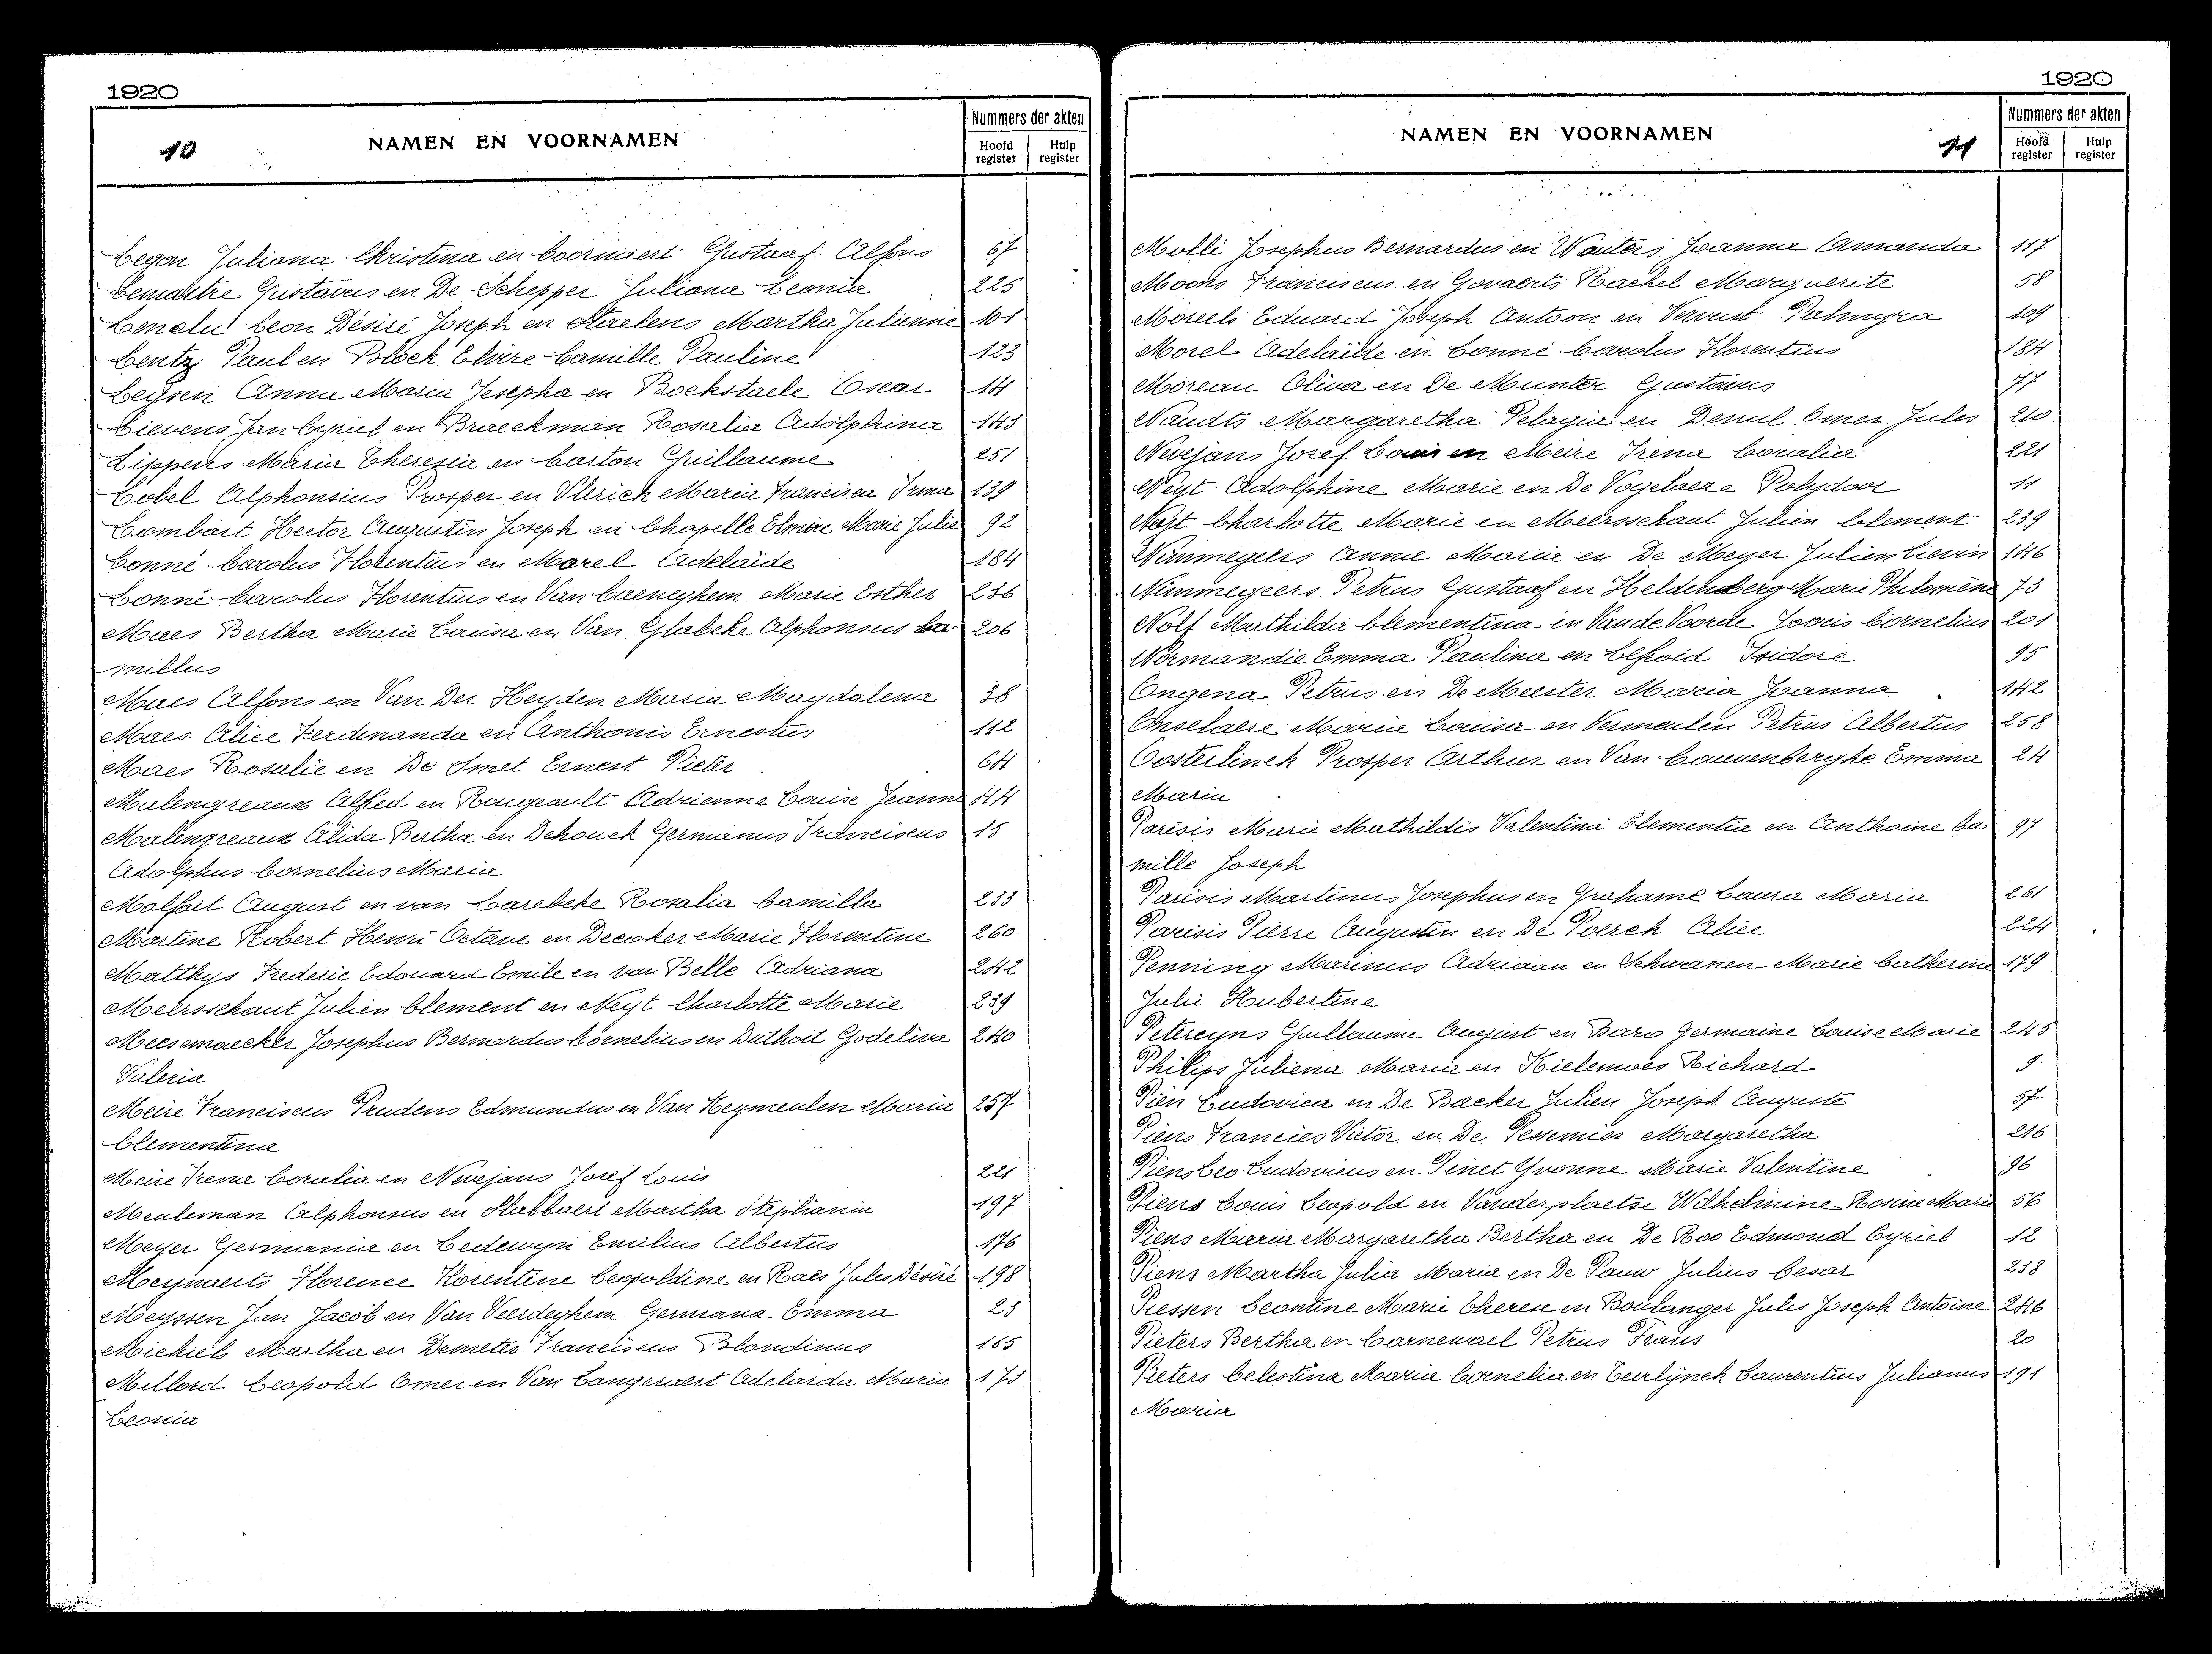 1920
10
NAMEN EN VOORNAMEN
Nummers der akten
Hoofd register
Hulp register
Legon Juliana Christina en Coornaert Gustaaf Alfons 67
Lemaitre Gustavus en De Schepper Juliana Leonia 225
Leon Désiré Joseph en Staelens Martha Julienne 101
Lentz Paul en Block Elvire Camille Pauline 123
Leysen Anna Maria Josepha en Bockstaele Oscar 14
Lievens Jan Cyriel en Braeckman Rosalia Adolphina 143
Lippens Maria Theresia en Carton Guillaume 251
Lobel Alphonsius Prosper en Ulrich Maria Francisca Irma 139
Lombart Hector Augustin Joseph en Chapelle Elmire Marie Julie 92
Lonné Carolus Florentius en Morel Adelaïde 184
Lonné Carolus Florentius en Van Caeneghem Marie Esther 236
Maes Bertha Marie Louisa en Van Glabeke Alphonsus Ca- 206
millus
Maes Alfons en Van Der Heyden Maria Magdalena 38
Maes Alice Ferdinanda en Anthonis Ernestus 112
Maes Rosalie en De Smet Ernest Pieter 64
Malengreaux Alfred en Rougeault Adrienne Louise Jeanne 44
Malengreaux Alida Bertha en Dehouck Germanus Franciscus 15
Adolphus Cornelius Maria
Malfait August en van Larebeke Rosalia Camilla 233
Martine Robert Henri Octave en Decoker Marie Florentine 260
Matthys Frederic Edouard Emile en van Belle Adriana 242
Meersschaut Julien Clement en Neyt Charlotte Marie 239
Meesemaecker Josephus Bernardus Cornelius en Duthoit Godelieve 240
Valeria
Meire Franciscus Prudens Edmundus en Van Heymeulen Maria 257
Clementina
Meire Irena Coralia en Nevejans Josef Louis 221
Meuleman Alphonsus en Slabbaert Martha Stephanie 197
Meyer Germania en Ledewyn Emilius Albertus 176
Meynaerts Florence Florentine Leopoldine en Raes Jules Désiré 198
Meyssen Jan Jacob en Van Veerdeghem Germana Emma 23
Michiels Martha en Demeter Franciscus Blondinus 165
Millord Leopold Omer en Van Langeraert Adelarda Maria 173
Leonia
1920
NAMEN EN VOORNAMEN
11
Nummers der akten
Hoofd register
Hulp register
Molli Josephus Bernardus en Wauters Joanna Amanda 117
Moons Franciscus en Govaerts Rachel Marguerite 58
Moreels Eduard Joseph Antoon en Vervust Palmyra 109
Morel Adelaïde en Lonné Carolus Florentius 184
Moreau Oliva en De Munter Gustavus 77
Naudts Margaretha Pelagia en Demul Omer Jules 210
Nevejans Josef Louis en Meire Irena Coralia 221
Neyt Adolphine Marie en De Vogelaere Polydoor 11
Neyt Charlotte Marie en Meersschaut Julien Clement 239
Nimmegeers Anna Maria en De Meyer Julien Lievin 146
Nimmegeers Petrus Gustaaf en Heldenberg Marie Philomène 73
Nolf Mathilda Clementina en Van de Voorde Jooris Cornelius 201
Normandie Emma Paulina en Isidore 95
Ongena Petrus en De Meester Maria Joanna 142
Onselaere Maria Louisa en Vermeulen Petrus Albertus 258
Oosterlinck Prosper Arthur en Van Cauwenberghe Emma 24
Maria
Parisis Marie Mathildis Valentina Clementia en Anthoine Ca- 97
mille Joseph
Parisis Martinus Josephus en Grahame Laura Maria 261
Parisis Pierre Augustin en De Poerck Alice 224
Penning Marinus Adriaan en Schwanen Marie Catherine 179
Julie Hubertine
Petereyns Guillaume August en Baro Germaine Louise Marie 245
Philips Juliena Maria en Kielemoes Richard 9
Pien Ludovica en De Backer Julien Joseph Auguste 57
Piens Francies Victor en De Pessemier Margaretha 216
Piens Leo Ludovicus en Pinet Yvonne Marie Valentine 96
Piens Louis Leopold en Vanderplaetse Wilhelmine Rosine Marie 56
Piens Maria Margaretha Bertha en De Roo Edmond Cyriel 12
Piens Martha Julia Maria en De Pauw Julius Cesar 238
Piessen Leontine Marie Therese en Boulanger Jules Joseph Antoine 246
Pieters Bertha en Carnewael Petrus Frans 20
Pieters Celestina Maria Cornelia en Teirlynck Laurentius Julianus 191
Maria